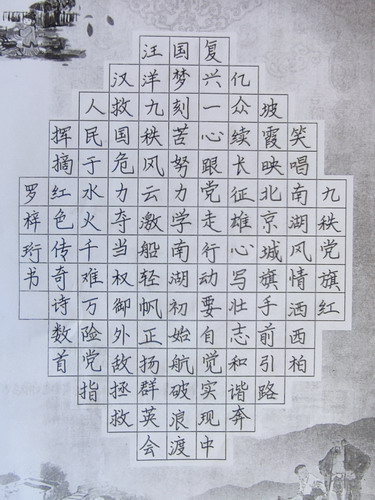 九秩党旗红
笑唱南湖风情洒西柏
坡霞映北京城旗手前引路
亿众续长征雄心写壮志和谐奔
复兴一心跟党走行动要自觉实现中
国梦刻苦努力学南湖初始航破浪渡
汪洋九秩风云激船轻帆正扬群英会
汉救国危力夺当权御外敌拯救
人民于水火千难万险党指
挥摘红色传奇诗数首
罗梓珩书